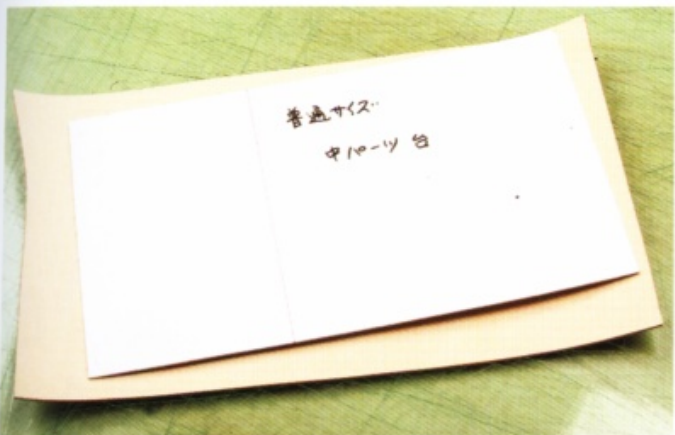 普通サイズ
中パーツ 台